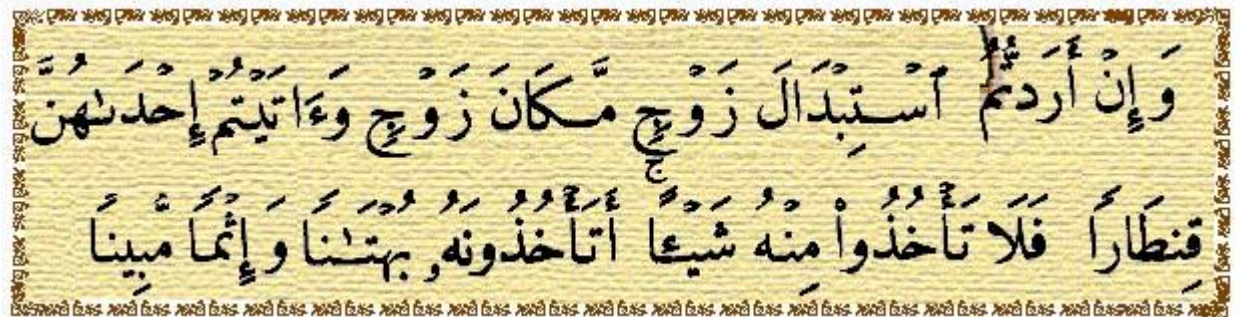 وَإِنْ أَرَدتُّمُ ٱسْتِبْدَالَ زَوْجٍ مَّكَانَ زَوْجٍ وَءَاتَيْتُمْ إِحْدَىٰهُنَّ
قِنطَارًا فَلَا تَأْخُذُوا۟ مِنْهُ شَيْـًٔا ۚ أَتَأْخُذُونَهُۥ بُهْتَـٰنًا وَإِثْمًا مُّبِينًا